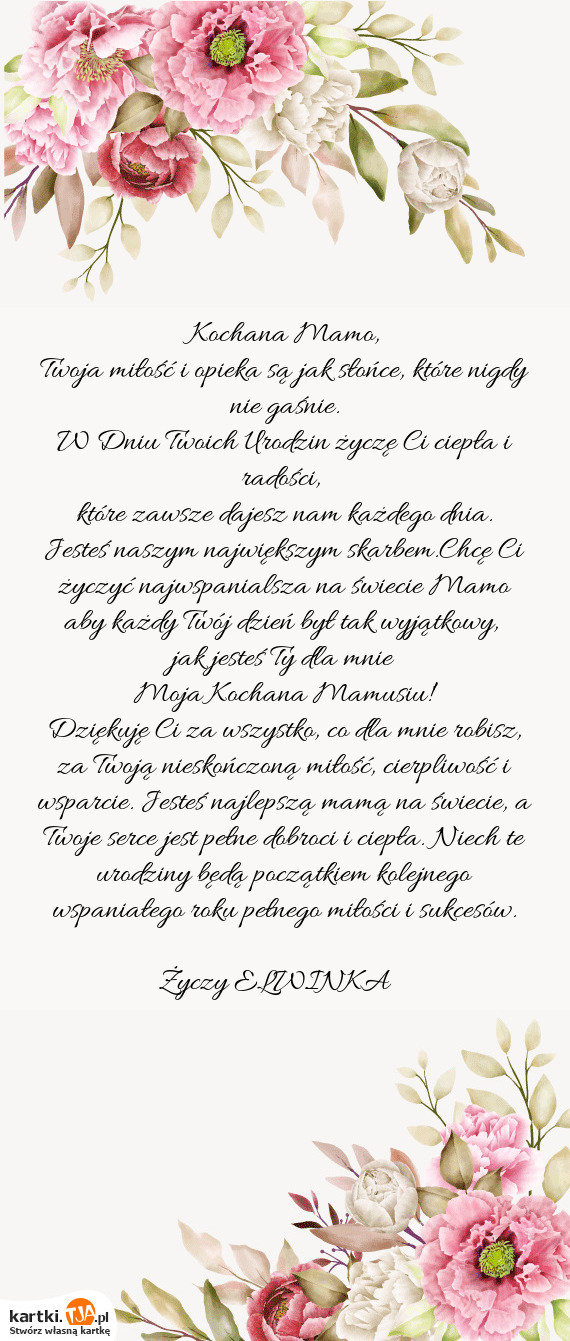 Kochana Mamo,
Twoja miłość i opieka są jak słońce, które nigdy
nie gaśnie.
W Dniu Twoich Urodzin życzę Ci ciepła i
radości,
które zawsze dajesz nam każdego dnia.
Jesteś naszym największym skarbem.Chcę Ci
życzyć najwspanialsza na świecie Mamo
aby każdy Twój dzień był tak wyjątkowy,
jak jesteś Ty dla mnie
Moja Kochana Mamusiu!
Dziękuję Ci za wszystko, co dla mnie robisz,
za Twoją nieskończoną miłość, cierpliwość i
wsparcie. Jesteś najlepszą mamą na świecie, a
Twoje serce jest pełne dobroci i ciepła. Niech te
urodziny będą początkiem kolejnego
wspaniałego roku pełnego miłości i sukcesów.
Życzy ELWINKA
kartki.TJA.pl
Stwórz własną kartkę